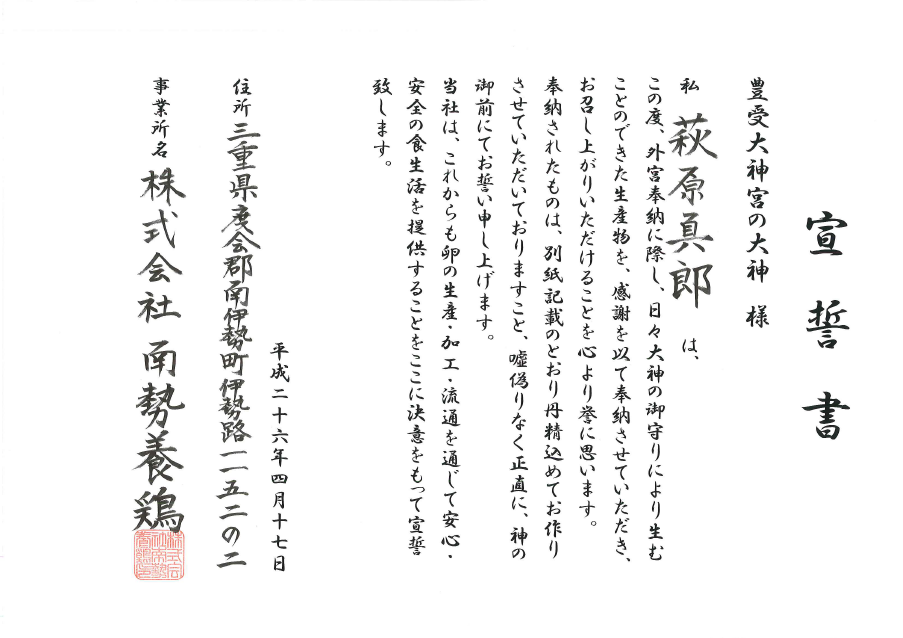 宣誓書
豊受大神宮の大神 様
私 萩原真郎 は、
この度、外宮奉納に際し、日々大神の御守りにより生む
ことのできた生産物を、感謝を以て奉納させていただき、
お召し上がりいただけることを心より誉に思います。
奉納されたものは、別紙記載のとおり丹精込めてお作り
させていただいておりますこと、嘘偽りなく正直に、神の
御前にてお誓い申し上げます。
当社は、これからも卵の生産・加工・流通を通じて安心・
安全の食生活を提供することをここに決意をもって宣誓
致します。
平成二十六年四月十七日
住所 三重県度会郡南伊勢町伊勢路一一五二の二
事業所名 株式会社 南勢養鶏
株式会
社南勢
養鶏之